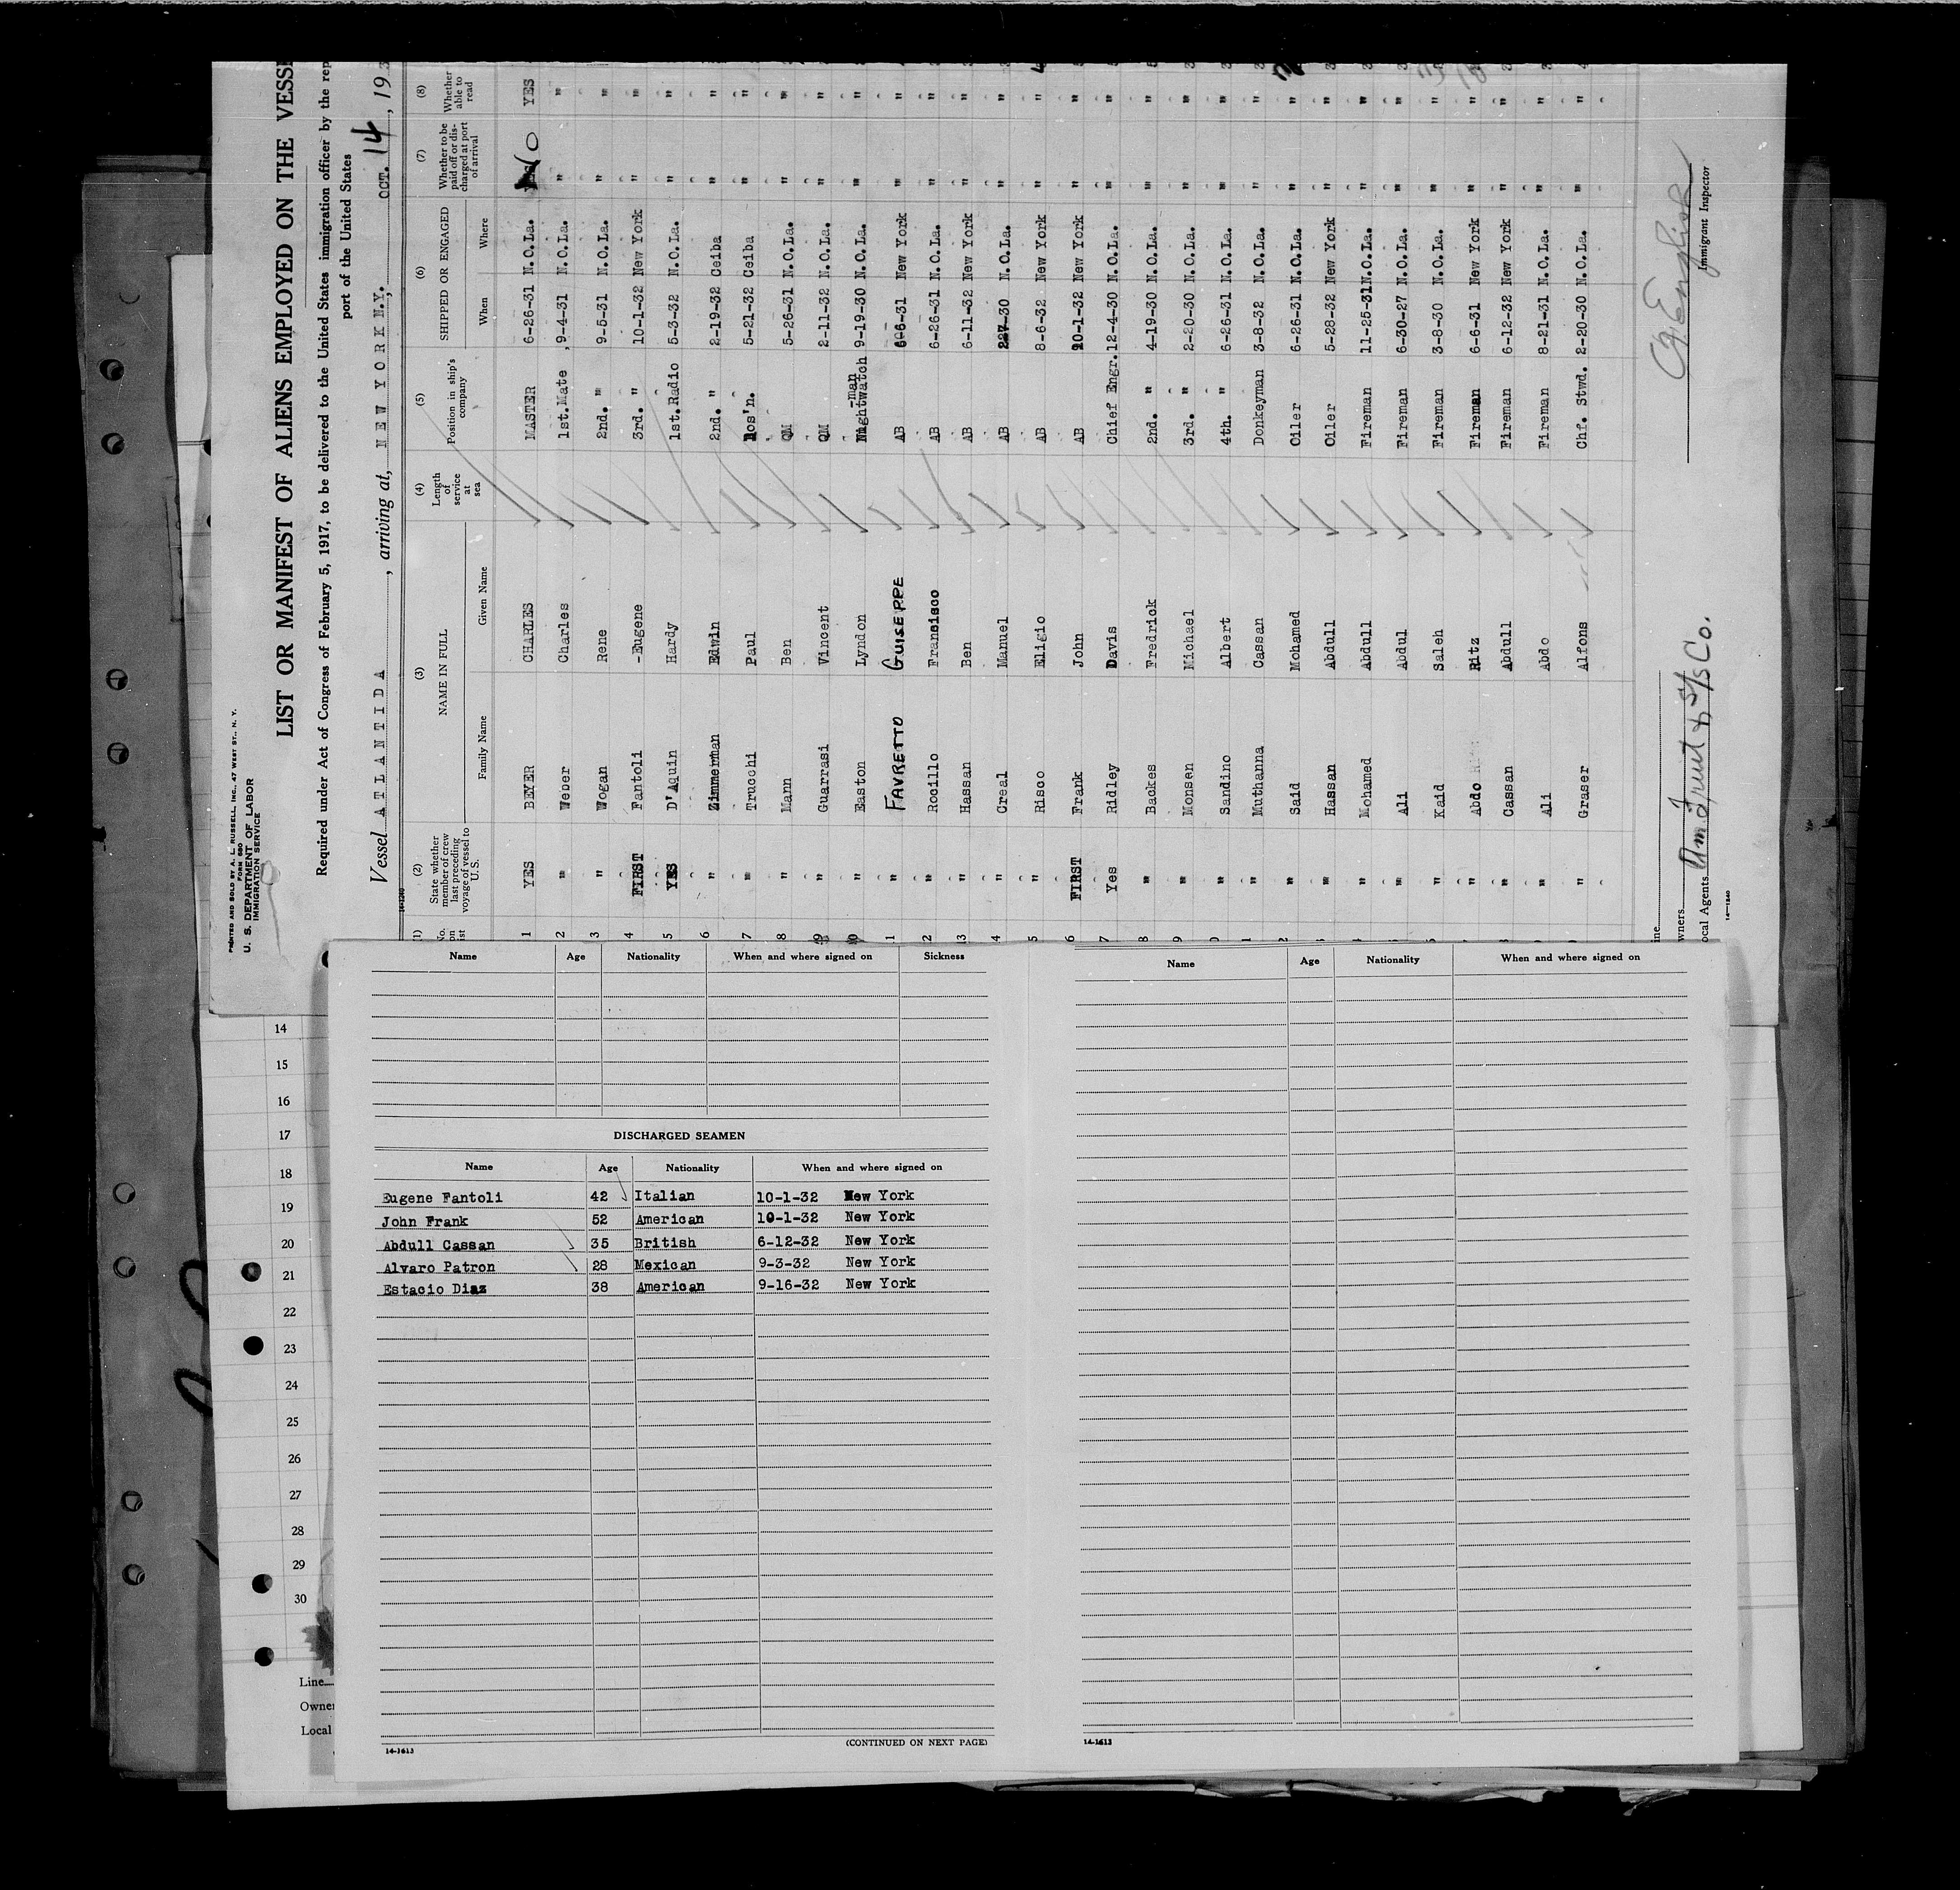 PRINTED AND SOLD BY A. L. RUSSELL, INC., 47 WEST ST., N. Y.
FORM 680
U. S. DEPARTMENT OF LABOR
IMMIGRATION SERVICE
LIST OR MANIFEST OF ALIENS EMPLOYED ON THE VESSE
Required under Act of Congress of February 5, 1917, to be delivered to the United States immigration officer by the rep
port of the United States
Vessel ATLANTIDA, arriving at, NEW YORK N.Y. OCT. 14, 193
14-1240
(1) (2) (3) (4) (5) (6) (7) (8)
No. on list State whether member of crew last preceding voyage of vessel to U. S. NAME IN FULL Length of service at sea Position in ship's company SHIPPED OR ENGAGED Whether to be paid off or discharged at port of arrival Whether able to read
Family Name Given Name When Where
1 YES BEYER CHARLES MASTER 6-26-31 N.O.La. NO YES
2 " Weber Charles 1st.Mate 9-4-31 N.O.La. " "
3 " Wogan Rene 2nd. " 9-5-31 N.O.La. " "
4 FIRST Fantoli -Eugene 3rd. " 10-1-32 New York " "
5 YES D'Aquin Hardy 1st.Radio 5-3-32 N.O.La. " "
6 " Zimmerman Edwin 2nd. " 2-19-32 Ceiba " "
7 " Trucchi Paul Bos'n. 5-21-32 Ceiba " "
8 " Mann Ben QM 5-26-31 N.O.La. " "
9 " Guarrasi Vincent QM 2-11-32 N.O.La. " "
10 " Easton Lyndon Nightwatch-man 9-19-30 N.O.La. " "
1 " FAVRETTO GUISEPPE AB 6-6-31 New York " "
2 " Rocillo Fransisco AB 6-26-31 N.O.La. " "
13 " Hassan Ben AB 6-11-32 New York " "
4 " Creal Manuel AB N.O.La. " "
5 " Risco Eligio AB 8-6-32 New York " "
6 FIRST Frank John AB 10-1-32 New York " "
7 Yes Ridley Davis Chief Engr. 12-4-30 N.O.La. " "
8 " Backes Fredrick 2nd. " 4-19-30 N.O.La. " "
9 " Monsen Michael 3rd. " 2-20-30 N.O.La. " "
0 " Sandino Albert 4th. " 6-26-31 N.O.La. " "
1 " Muthanna Cassan Donkeyman 3-8-32 N.O.La. " "
2 " Said Mohamed Oiler 6-26-31 N.O.La. " "
" Hassan Abdull Oiler 5-28-32 New York " "
" Mohamed Abdull Fireman 11-25-31 N.O.La. " "
" Ali Abdul Fireman 6-30-27 N.O.La. " "
" Kaid Saleh Fireman 3-8-30 N.O.La. " "
" Abdo Ritz Fireman 6-6-31 New York " "
" Cassan Abdull Fireman 6-12-32 New York " "
" Ali Abdo Fireman 8-21-31 N.O.La. " "
" Graser Alfons Chf. Stwd. 2-20-30 N.O.La. " "
Immigrant Inspector
ine
wners
ocal Agents Am Fruit & S/S Co.
14-1240
14
15
16
17
18
19
20
21
22
23
24
25
26
27
28
29
30
Line
Owner
Local
Name Age Nationality When and where signed on Sickness
DISCHARGED SEAMEN
Name Age Nationality When and where signed on
Eugene Fantoli 42 Italian 10-1-32 New York
John Frank 52 American 10-1-32 New York
Abdull Cassan 35 British 6-12-32 New York
Alvaro Patron 28 Mexican 9-3-32 New York
Estacio Diaz 38 American 9-16-32 New York
14-1613
(CONTINUED ON NEXT PAGE)
Name Age Nationality When and where signed on
14-1613